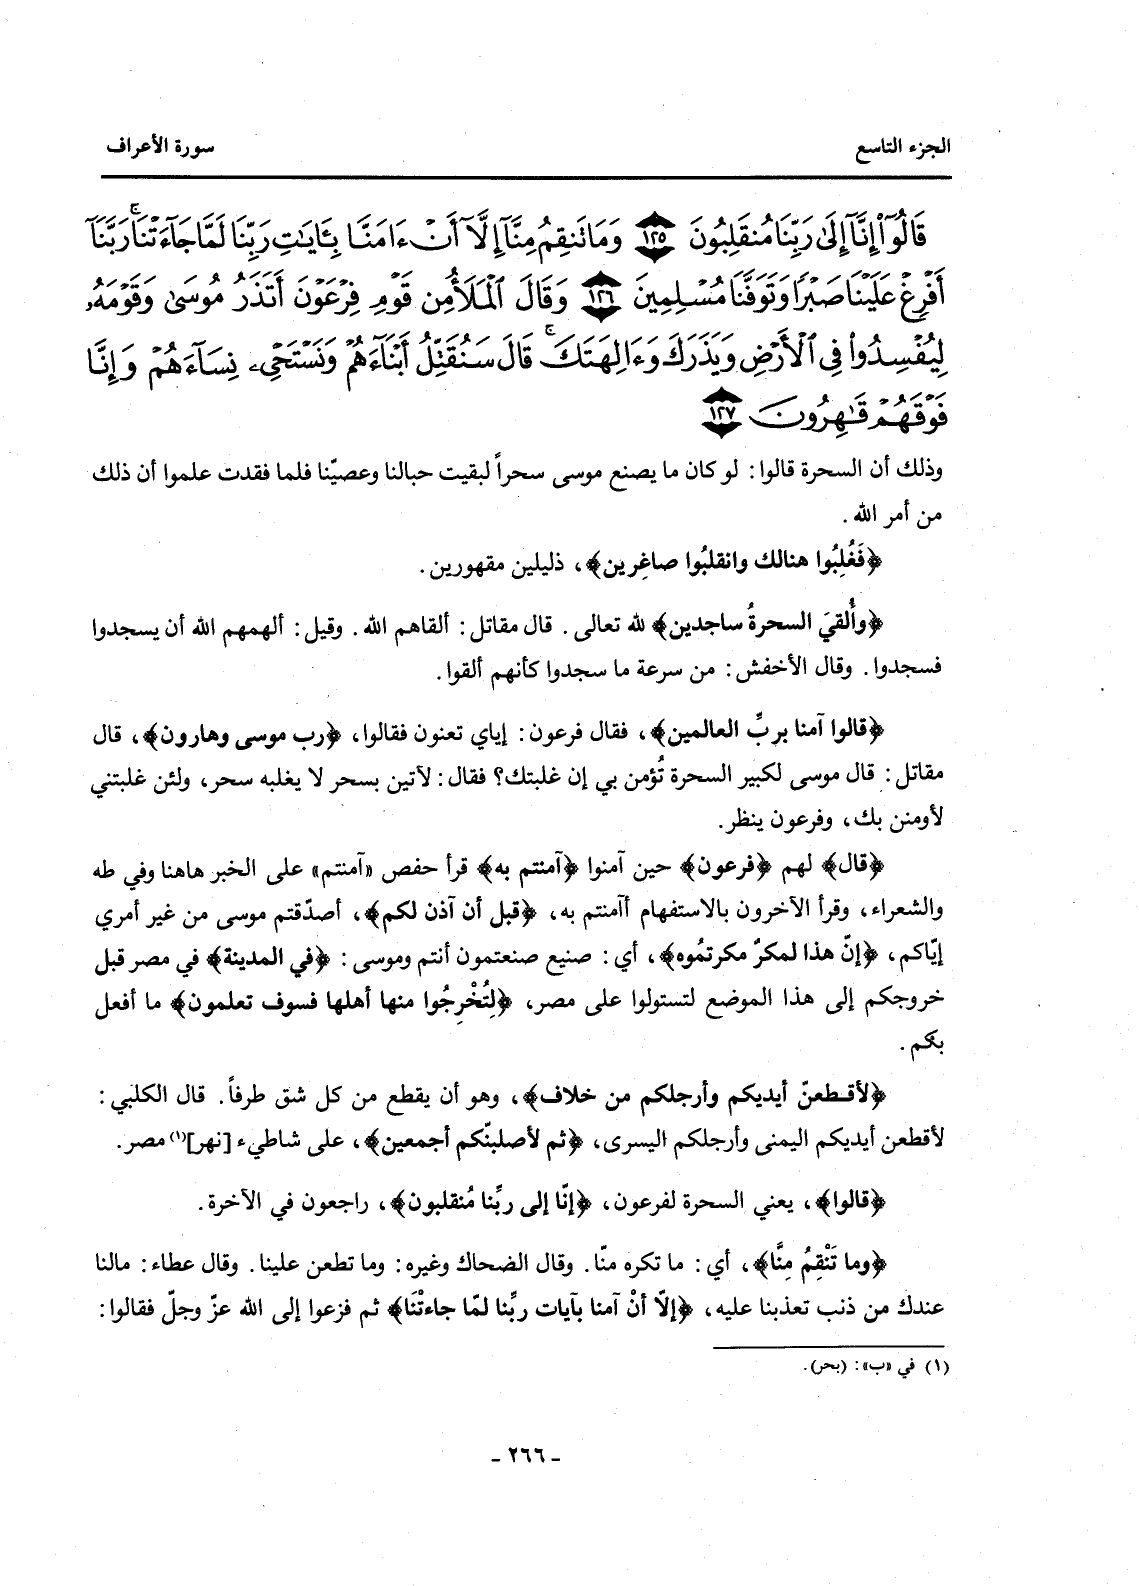 الجزء التاسع سورة الأعراف
قَالُوٓاْ إِنَّآ إِلَىٰ رَبِّنَا مُنقَلِبُونَ ١٢٥ وَمَا تَنقِمُ مِنَّآ إِلَّآ أَنْ ءَامَنَّا بِـَٔايَٰتِ رَبِّنَا لَمَّا جَآءَتْنَا ۚ رَبَّنَآ
أَفْرِغْ عَلَيْنَا صَبْرًا وَتَوَفَّنَا مُسْلِمِينَ ١٢٦ وَقَالَ ٱلْمَلَأُ مِن قَوْمِ فِرْعَوْنَ أَتَذَرُ مُوسَىٰ وَقَوْمَهُۥ
لِيُفْسِدُواْ فِي ٱلْأَرْضِ وَيَذَرَكَ وَءَالِهَتَكَ ۚ قَالَ سَنُقَتِّلُ أَبْنَآءَهُمْ وَنَسْتَحْيِۦ نِسَآءَهُمْ وَإِنَّا
فَوْقَهُمْ قَٰهِرُونَ ١٢٧
وذلك أن السحرة قالوا: لو كان ما يصنع موسى سحراً لبقيت حبالنا وعصيّنا فلما فقدت علموا أن ذلك
من أمر الله.
﴿فَغُلِبُوا هنالك وانقلبُوا صاغِرين﴾، ذليلين مقهورين.
﴿وأُلقيَ السحرةُ ساجدين﴾ لله تعالى. قال مقاتل: ألقاهم الله. وقيل: ألهمهم الله أن يسجدوا
فسجدوا. وقال الأخفش: من سرعة ما سجدوا كأنهم ألقوا.
﴿قالوا آمنا بربِّ العالمين﴾، فقال فرعون: إياي تعنون فقالوا، ﴿رب موسى وهارون﴾، قال
مقاتل: قال موسى لكبير السحرة تُؤمن بي إن غلبتك؟ فقال: لآتين بسحر لا يغلبه سحر، ولئن غلبتني
لأومنن بك، وفرعون ينظر.
﴿قال﴾ لهم ﴿فرعون﴾ حين آمنوا ﴿آمنتم به﴾ قرأ حفص «آمنتم» على الخبر هاهنا وفي طه
والشعراء، وقرأ الآخرون بالاستفهام أآمنتم به، ﴿قبل أن آذن لكم﴾، أصدّقتم موسى من غير أمري
إيّاكم، ﴿إنّ هذا لمكرٌ مكرتمُوه﴾، أي: صنيع صنعتمون أنتم وموسى: ﴿في المدينة﴾ في مصر قبل
خروجكم إلى هذا الموضع لتستولوا على مصر، ﴿لِتُخْرِجُوا منها أهلها فسوف تعلمون﴾ ما أفعل
بكم.
﴿لأقطعنّ أيديكم وأرجلكم من خلاف﴾، وهو أن يقطع من كل شق طرفاً. قال الكلبي:
لأقطعن أيديكم اليمنى وأرجلكم اليسرى، ﴿ثم لأصلبنّكم أجمعين﴾، على شاطيء [نهر](١) مصر.
﴿قالوا﴾، يعني السحرة لفرعون، ﴿إنّا إلى ربِّنا مُنقلبون﴾، راجعون في الآخرة.
﴿وما تَنْقِمُ مِنَّا﴾، أي: ما تكره منّا. وقال الضحاك وغيره: وما تطعن علينا. وقال عطاء: مالنا
عندك من ذنب تعذبنا عليه، ﴿إلّا أنْ آمنا بآيات ربِّنا لمّا جاءتْنَا﴾ ثم فزعوا إلى الله عزّ وجلّ فقالوا:
(١) في «ب»: (بحر).
- ٢٦٦ -